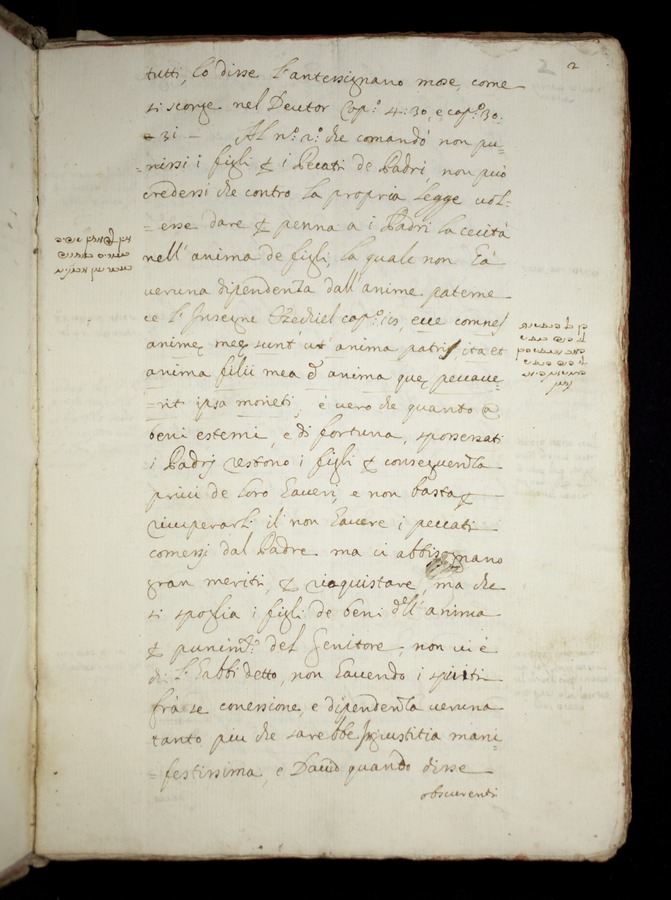 2 2
tutti, lo disse l'antesignano mose, come
si scorge nel Deutor Cap.º 4:30, e cap.º 30:
= 31 - Al n.º 2.º che comandò non pu=
=nirsi i figli & i Peccati de Padri, non può
credersi che contro la propria legge vol=
=esse dare & penna a i Padri la cecità
nell'anima de figli, la quale non ha'
veruna dipendenza dall'anime paterne
ce l'insegna Ezechiel cap.º 18, ecce omnes
animę meę sunt ut anima patris ita et
anima filii mea é anima quę peccave=
=rit ipsa morietì, è vero che quanto a
beni esterni, e di fortuna, spossessati
i Padrj restono i figli & conseguenza
privi de loro haveri, e non basta &
ricuperarli il non havere i peccati
comessi dal Padre ma ci abbisognano
gran meriti, & riaquistare, ma che
si spoglia i figli de beni dell'anima
& punim.to del Genitore, non vi è
chi l'habbi detto, non havendo i spiriti
frà se conessione, e dipendenza veruna
tanto piu che sarebbe ingiustitia mani
=festissima, e David quando disse
obscurenti